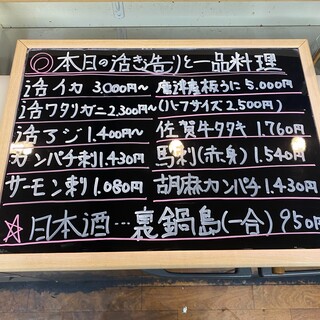 ◎本日の活き造りと一品料理
活イカ 3,000円~ 唐津産板うに 5,000円
活ワタリガニ 2,300円~ (ハーフサイズ 2,500円)
活アジ 1,400円~ 佐賀牛タタキ 1,760円
カンパチ刺 1,430円 馬刺(赤身) 1,540円
サーモン刺り 1,080円 胡麻カンパチ 1,430円
☆日本酒…裏鍋島(一合) 950円